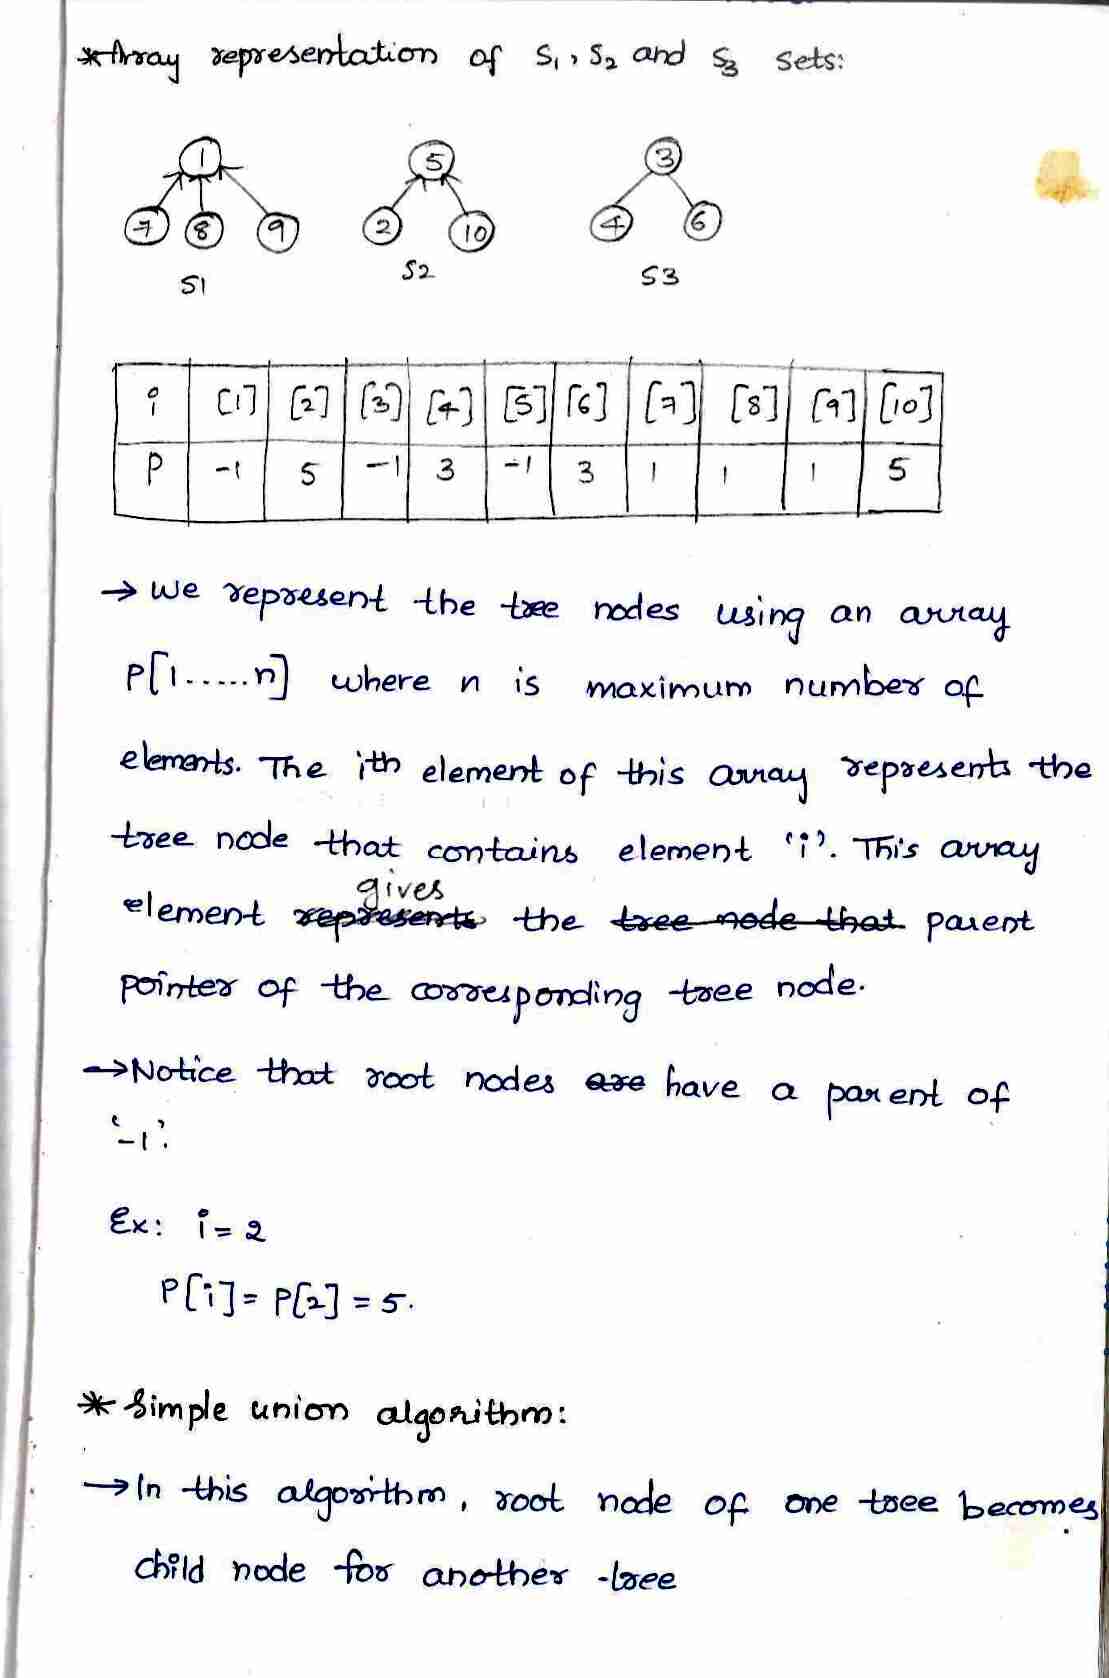 *Array representation of S1, S2 and S3 sets:
1 5 3
7 8 9 2 10 4 6
S1 S2 S3
i [1] [2] [3] [4] [5] [6] [7] [8] [9] [10]
P -1 5 -1 3 -1 3 1 1 1 5
→ We represent the tree nodes using an array
P[1.....n] where n is maximum number of
elements. The ith element of this array represents the
tree node that contains element 'i'. This array
gives
element represents the tree node that parent
pointer of the corresponding tree node.
→Notice that root nodes are have a parent of
'-1'.
Ex: i=2
P[i]= P[2] = 5.
* Simple union algorithm:
→In this algorithm, root node of one tree becomes
child node for another tree